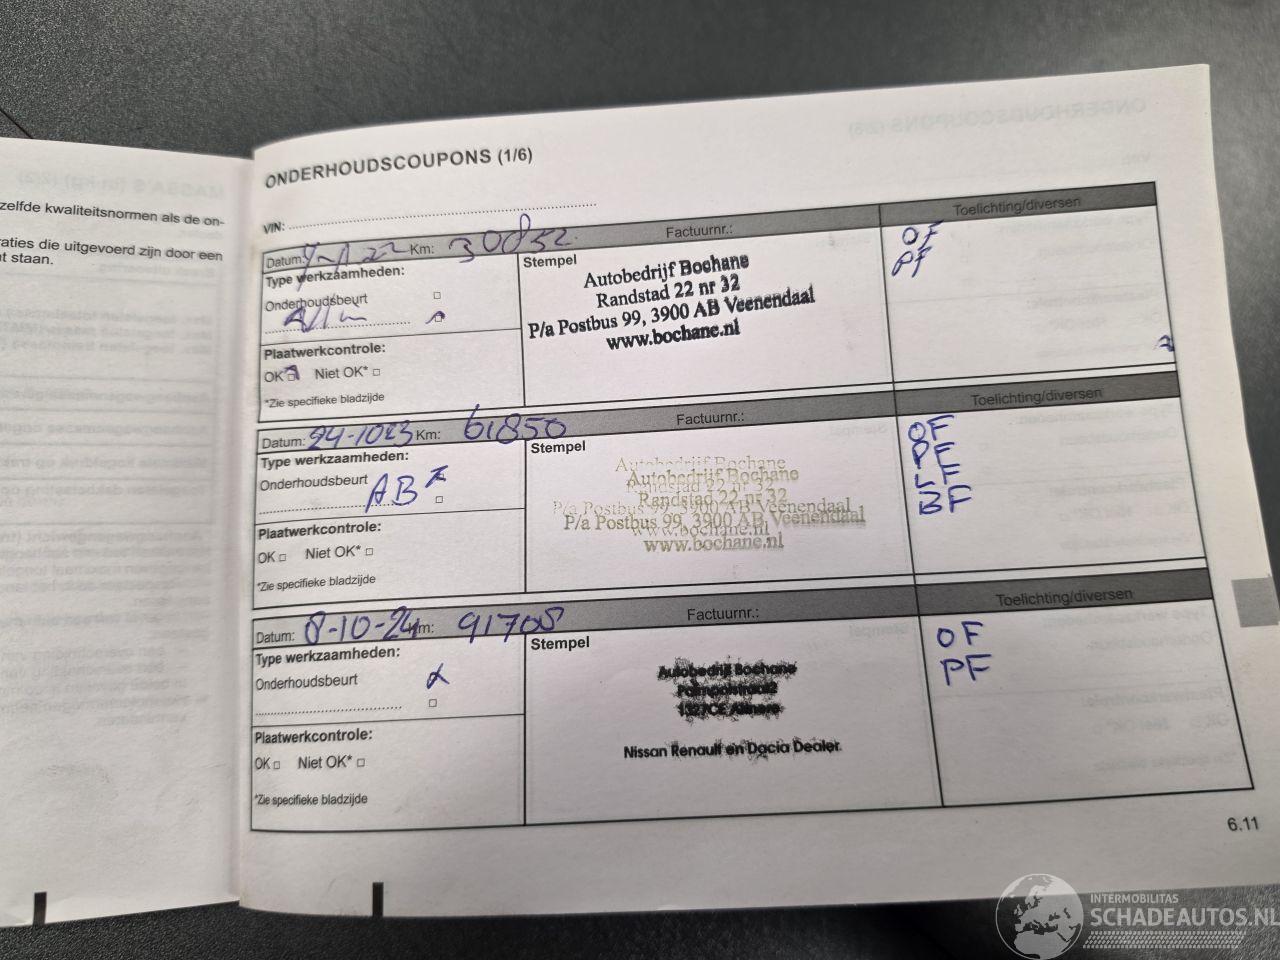 zelfde kwaliteitsnormen als de on-
raties die uitgevoerd zijn door een
t staan.
ONDERHOUDSCOUPONS (1/6)
VIN:
Datum: Km: 30852 Factuurnr.: Toelichting/diversen
Type werkzaamheden:
Onderhoudsbeurt
Stempel
Autobedrijf Bochane
Randstad 22 nr 32
P/a Postbus 99, 3900 AB Veenendaal
www.bochane.nl
OF
PF
Plaatwerkcontrole:
OK Niet OK*
*Zie specifieke bladzijde
Datum: 24-10-23 Km: 61850 Factuurnr.: Toelichting/diversen
Type werkzaamheden:
Onderhoudsbeurt
AB
Stempel
Autobedrijf Bochane
Randstad 22 nr 32
P/a Postbus 99, 3900 AB Veenendaal
www.bochane.nl
OF
PF
BF
Plaatwerkcontrole:
OK Niet OK*
*Zie specifieke bladzijde
Datum: 8-10-24 Km: 91708 Factuurnr.: Toelichting/diversen
Type werkzaamheden:
Onderhoudsbeurt
Stempel
Autobedrijf Bochane
Nissan Renault en Dacia Dealer
OF
PF
Plaatwerkcontrole:
OK Niet OK*
*Zie specifieke bladzijde
6.11
INTERMOBILITAS
SCHADEAUTOS.NL